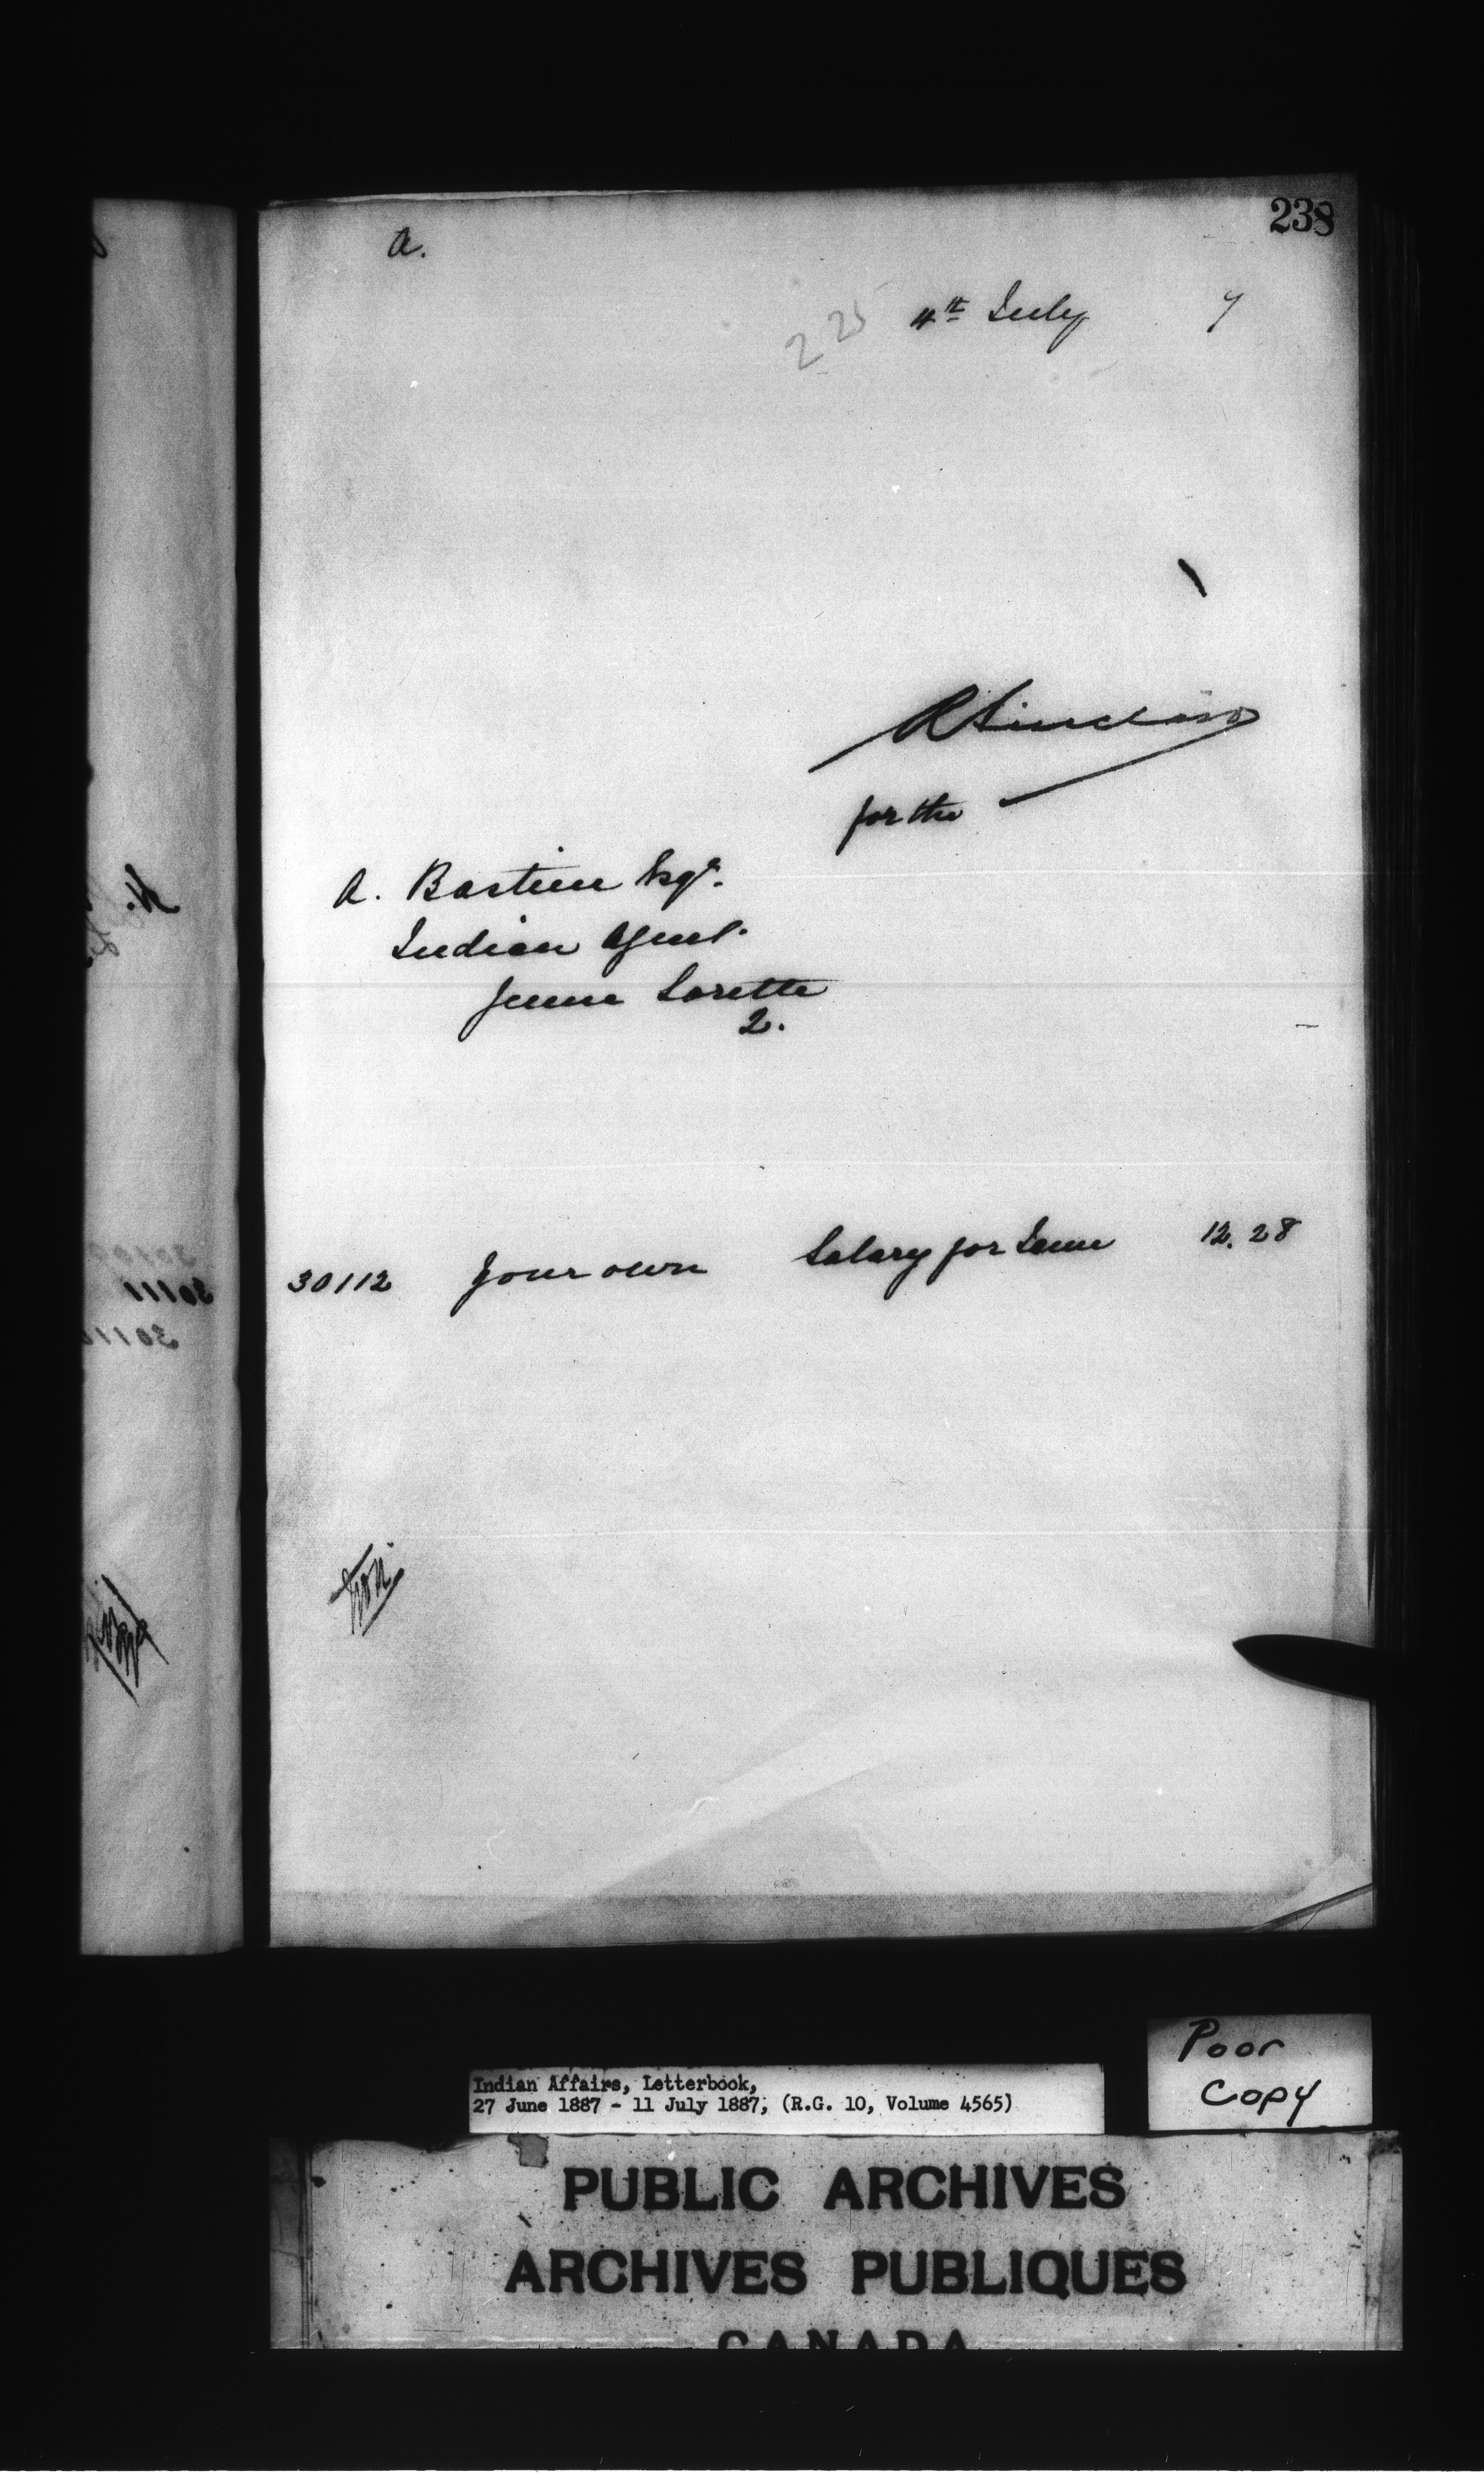 238
a.
225
4th July 7
R Sinclair
for the
A. Bastien Esqr.
Indian Agent.
Jeune Lorette
2.
30112 Your own Salary for June 12.28
30111
Poor
Copy
Indian Affairs, Letterbook,
27 June 1887 - 11 July 1887, (R.G. 10, Volume 4565)
PUBLIC ARCHIVES
ARCHIVES PUBLIQUES
CANADA